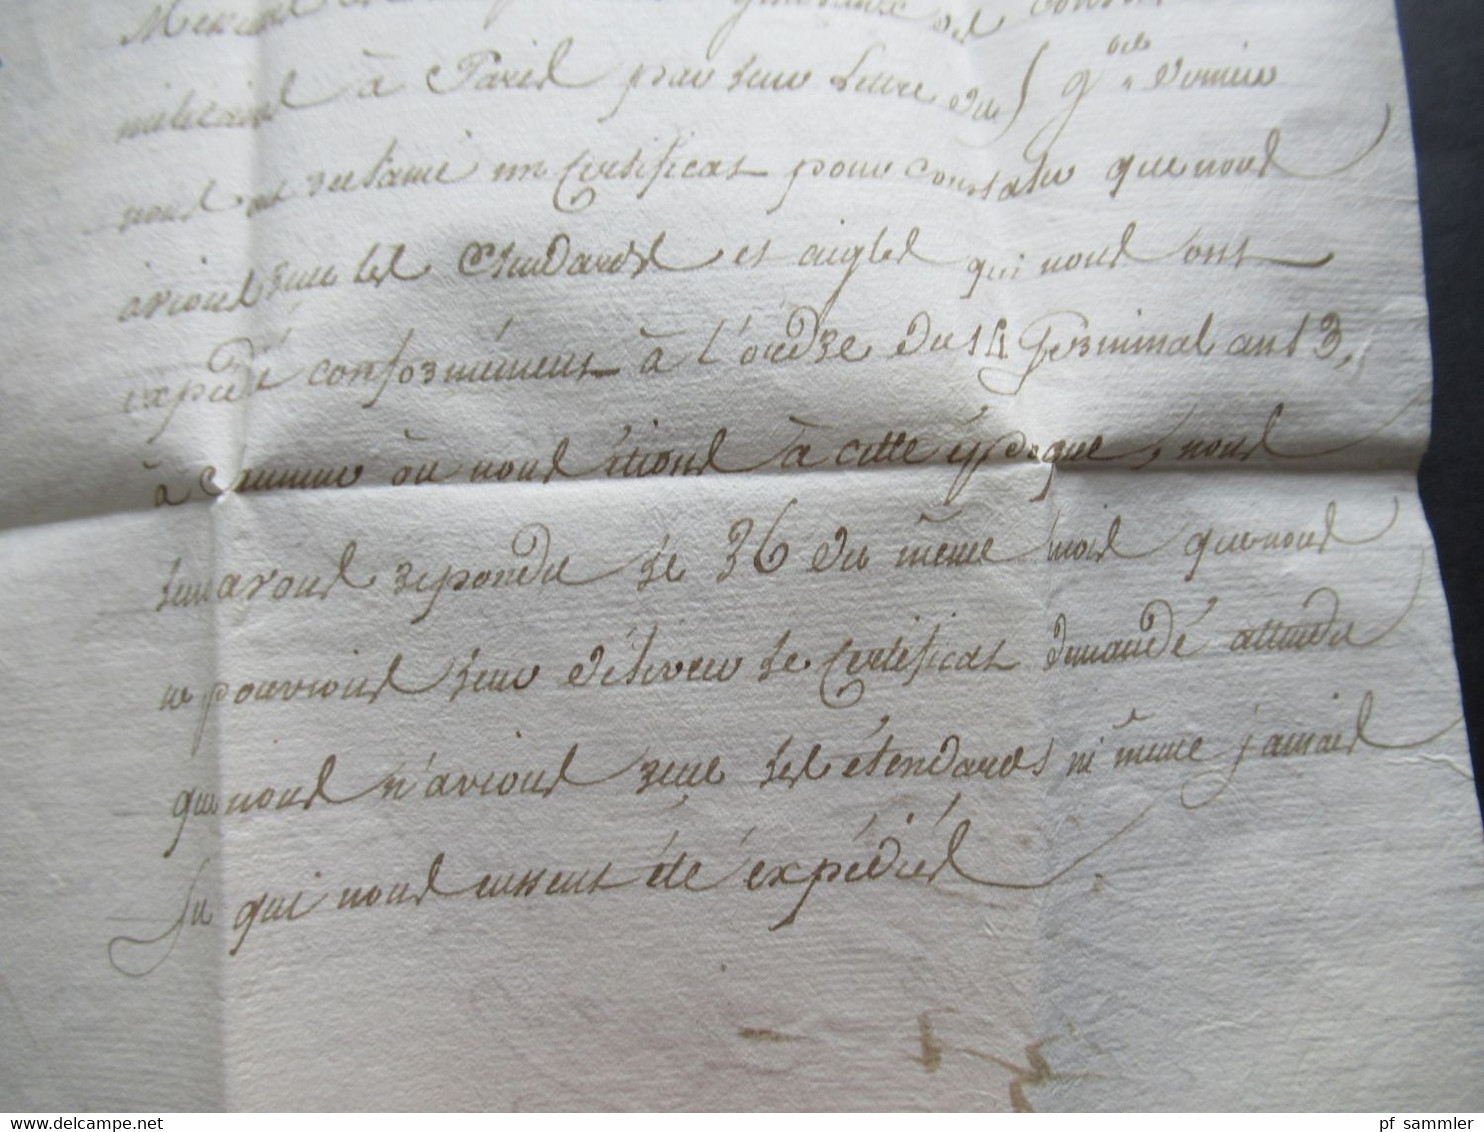 militaires à Paris par leur Lettre du 5 9bre dernier
nous ont reclamé un Certificat pour constater que nous
avions reçu les Etendards et aigles qui nous ont
expédié conformément à l'ordre du 14 Germinal an 13,
à où nous étions à cette époque, nous
leur avons repondu le 26 du même mois que nous
ne pouvions leur délivrer le Certificat demandé attendu
que nous n'avions reçu les étendards ni même jamais
su qui nous eussent été expédiés.
pf sammler
www.delcampe.net